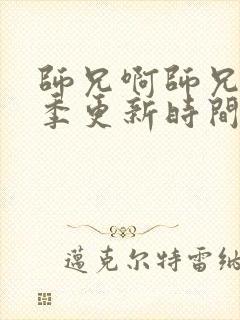 師兄啊師兄
季更新時間
邁克尔特雷納